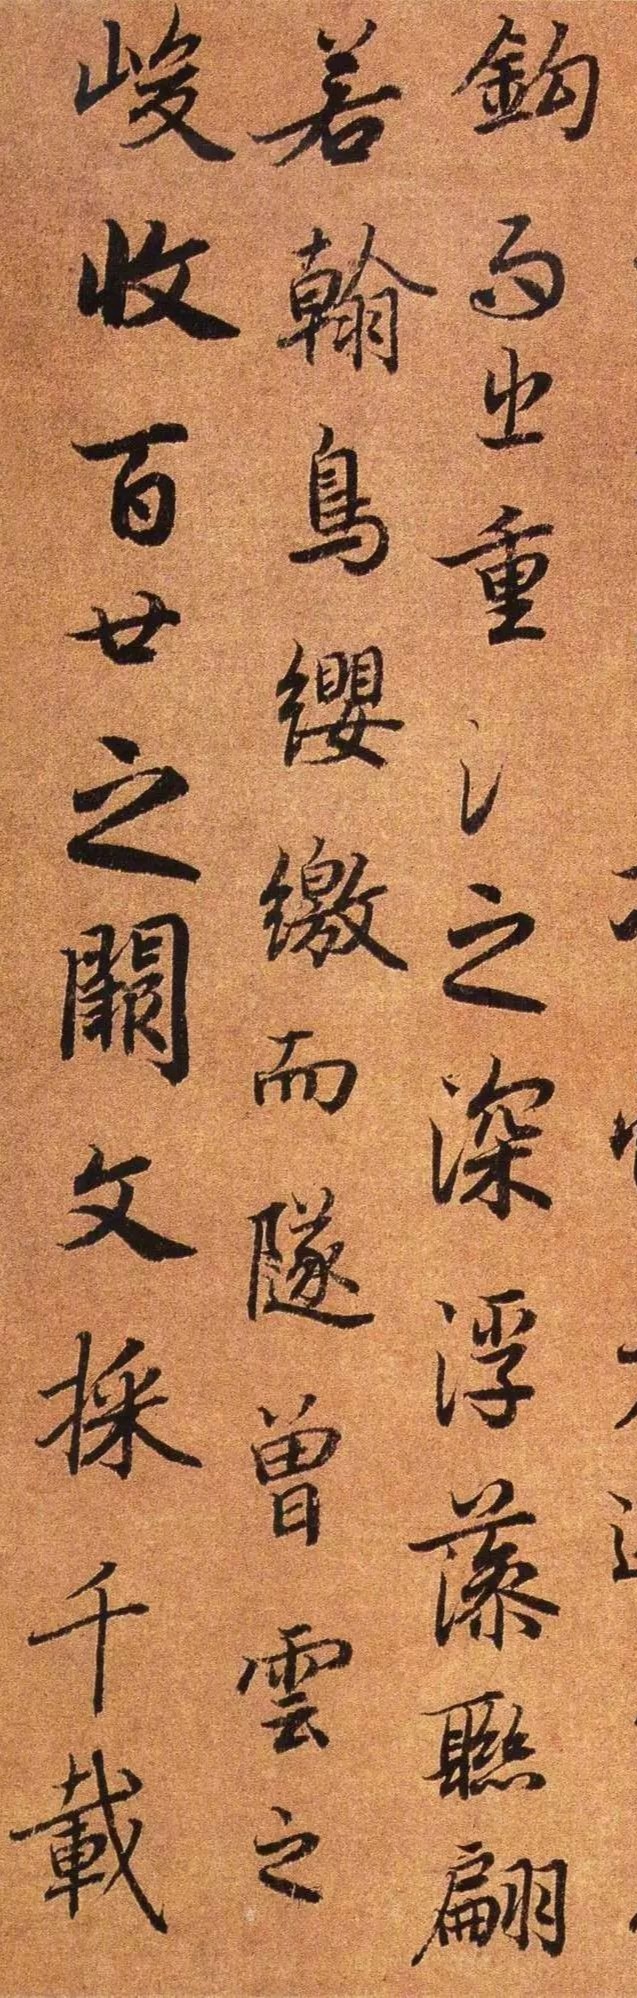 鈎而出重氵之深浮藻聯翩
若翰鳥纓繳而隧曾雲之
峻收百廿之闕文採千載